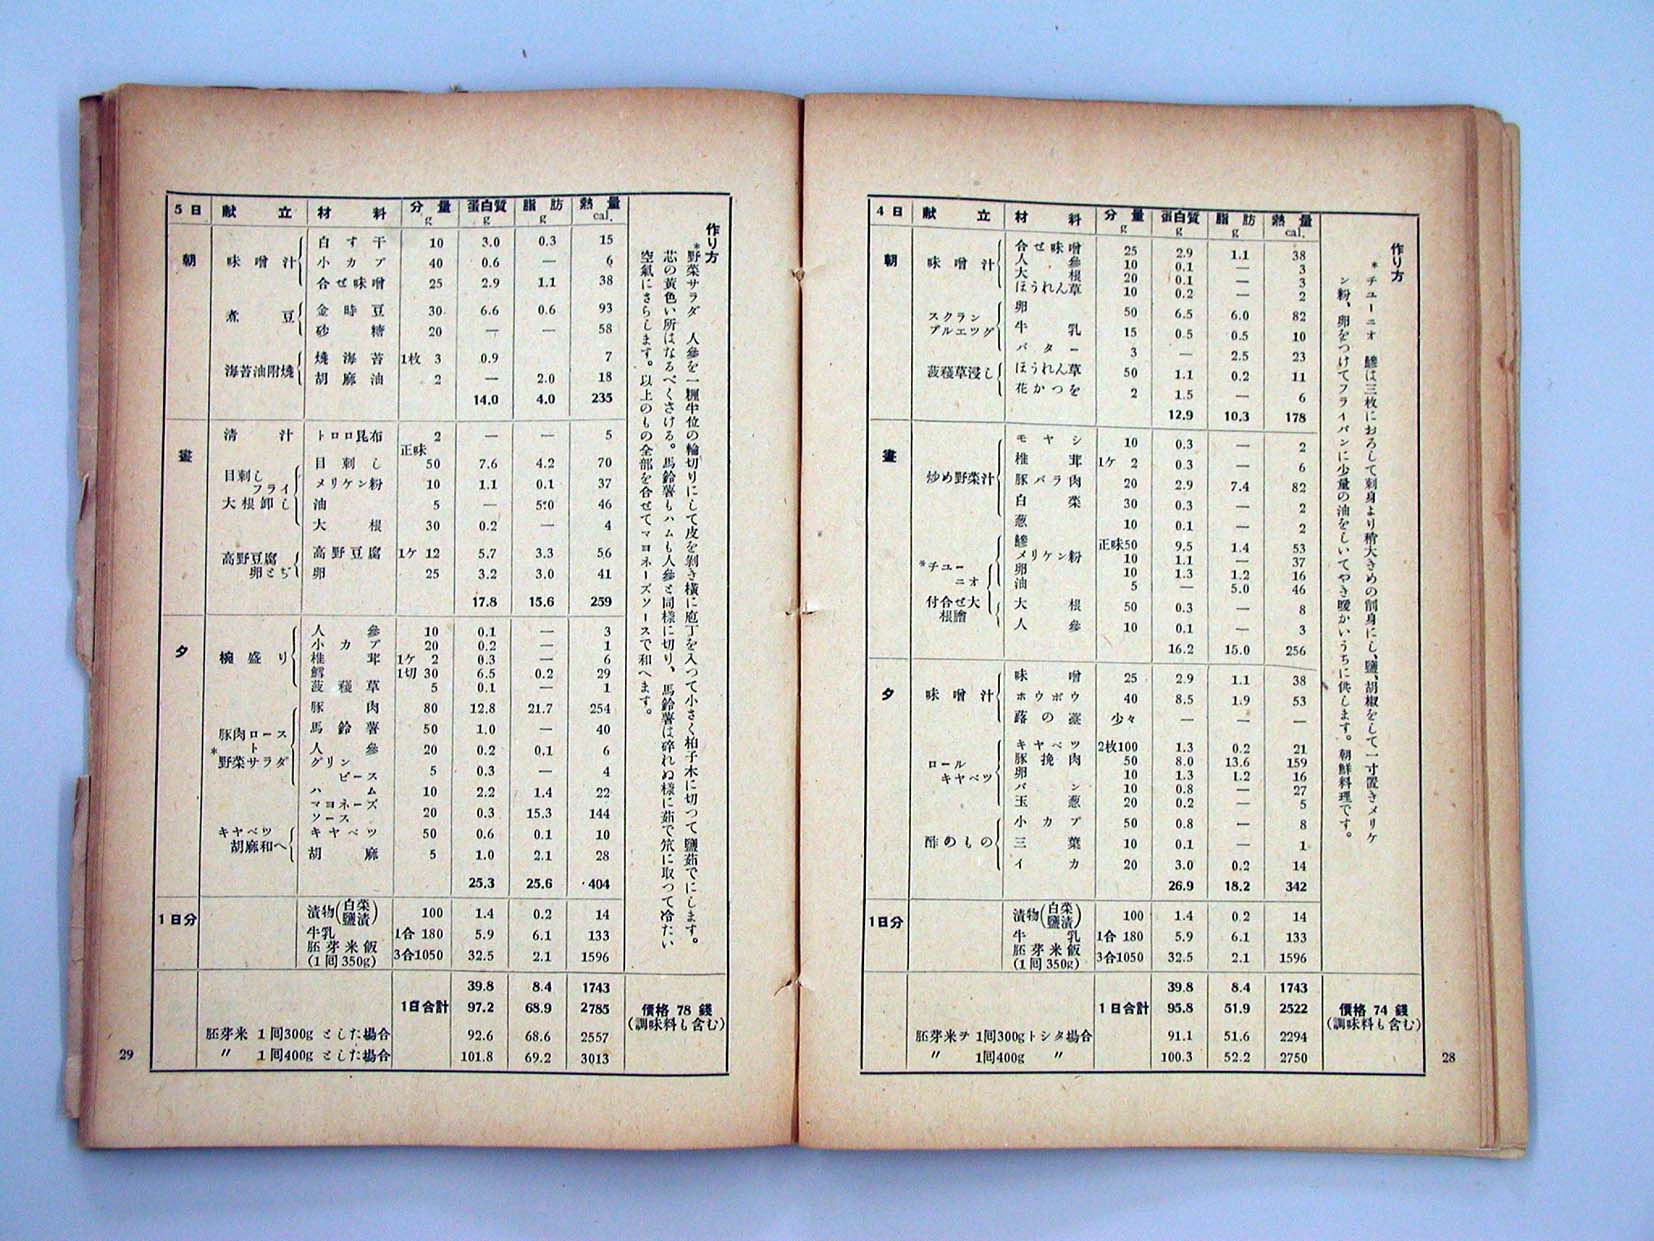 4日 献立 材料 分量 g 蛋白質 g 脂肪 g 熱量 cal.
朝 味噌汁 合せ味噌 25 2.9 1.1 38
人参 10 0.1 — 3
大根 20 0.1 — 3
ほうれん草 10 0.2 — 2
スクランブルエツグ 卵 50 6.5 6.0 82
牛乳 15 0.5 0.5 10
バター 3 — 2.5 23
菠薐草浸し ほうれん草 50 1.1 0.2 11
花かつを 2 1.5 — 6
12.9 10.3 178
晝 炒め野菜汁 モヤシ 10 0.3 — 2
椎茸 1ケ 2 0.3 — 6
豚バラ肉 20 2.9 7.4 82
白菜 30 0.3 — 2
葱 10 0.1 — 2
*チユーニオ 鯵 正味50 9.5 1.4 53
メリケン粉 10 1.1 — 37
卵 10 1.3 1.2 16
油 5 — 5.0 46
付合せ大根膾 大根 50 0.3 — 8
人参 10 0.1 — 3
16.2 15.0 256
夕 味噌汁 味噌 25 2.9 1.1 38
ホウボウ 40 8.5 1.9 53
蕗の薹 少々 — — —
ロールキヤベツ キヤベツ 2枚100 1.3 0.2 21
豚挽肉 50 8.0 13.6 159
卵 10 1.3 1.2 16
パン 10 0.8 — 27
玉葱 20 0.2 — 5
酢のもの 小カブ 50 0.8 — 8
三葉 10 0.1 — 1
イカ 20 3.0 0.2 14
26.9 18.2 342
1日分 漬物(白菜鹽漬) 100 1.4 0.2 14
牛乳 1合 180 5.9 6.1 133
胚芽米飯 (1回350g) 3合1050 32.5 2.1 1596
39.8 8.4 1743
1日合計 95.8 51.9 2522
胚芽米テ 1回300gトシタ場合 91.1 51.6 2294
〃 1回400g 〃 100.3 52.2 2750
作り方
*チユーニオ 鯵は三枚におろして刺身より稍大きめの削身にし、鹽、胡椒をして一寸置きメリケ
ン粉、卵をつけてフライパンに少量の油をしいてやき暖かいうちに供します。朝鮮料理です。
價格 74 錢
(調味料も含む)
28
5日 献立 材料 分量 g 蛋白質 g 脂肪 g 熱量 cal.
朝 味噌汁 白す干 10 3.0 0.3 15
小カブ 40 0.6 — 6
合せ味噌 25 2.9 1.1 38
煮豆 金時豆 30 6.6 0.6 93
砂糖 20 — — 58
海苔油附燒 燒海苔 1枚 3 0.9 7
胡麻油 2 — 2.0 18
14.0 4.0 235
晝 清汁 トロロ昆布 2 — — 5
目刺しフライ 目刺し 正味 50 7.6 4.2 70
メリケン粉 10 1.1 0.1 37
大根卸し 油 5 — 5.0 46
大根 30 0.2 — 4
高野豆腐卵とぢ 高野豆腐 1ケ 12 5.7 3.3 56
卵 25 3.2 3.0 41
17.8 15.6 259
夕 椀盛り 人参 10 0.1 — 3
小カブ 20 0.2 — 1
椎茸 1ケ 2 0.3 — 6
鱈 1切 30 6.5 0.2 29
菠薐草 5 0.1 — 1
豚肉ロースト *野菜サラダ 豚肉 80 12.8 21.7 254
馬鈴薯 50 1.0 — 40
人参 20 0.2 0.1 6
グリンピース 5 0.3 — 4
ハム 10 2.2 1.4 22
マヨネーズソース 20 0.3 15.3 144
キヤベツ胡麻和へ キヤベツ 50 0.6 0.1 10
胡麻 5 1.0 2.1 28
25.3 25.6 404
1日分 漬物(白菜鹽漬) 100 1.4 0.2 14
牛乳 1合 180 5.9 6.1 133
胚芽米飯 (1回350g) 3合1050 32.5 2.1 1596
39.8 8.4 1743
1日合計 97.2 68.9 2785
胚芽米 1回300g とした場合 92.6 68.6 2557
〃 1回400g とした場合 101.8 69.2 3013
作り方
*野菜サラダ 人參を一糎半位の輪切りにして皮を剝き横に庖丁を入つて小さく柏子木に切つて鹽茹でにします。
芯の黃色い所はなるべくさける。馬鈴薯もハムも人參と同様に切り、馬鈴薯は碎れぬ樣に茹で笊に取つて冷たい
空氣にさらします。以上のもの全部を合せてマヨネーズソースで和へます。
價格 78 錢
(調味料も含む)
29